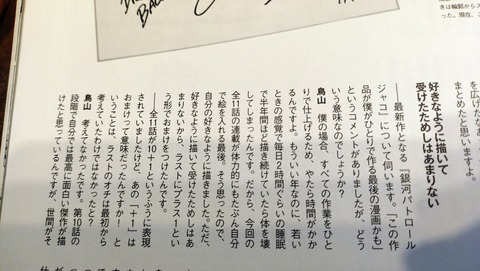 きは輪郭からス
った。現在、こ
まとめたと思いますよ。
好きなように描いて
受けたためしはあまりない
──最新作となる『銀河パトロール
ジャコ』について伺います。「この作
品が僕がひとりで作る最後の漫画かも」
というコメントがありましたが、どう
いう意味なのでしょうか?
鳥山 僕の場合、すべての作業をひと
りで仕上げるため、やたら時間がかか
るんですよ。もういい年なのに、若い
ときの感覚で毎日2時間ぐらいの睡眠
で半年間ほど描き続けていたら体を壊
してしまったんです。だから、今回の
全11話の連載が体力的にもたぶん自分
で絵を入れる最後。そう思ったので、
自分の好きなように描きました。ただ、
好きなように描いて受けたためしはあ
まりないから、ラストにプラス1とい
う形でおまけをつけたんです。
──全11話が11+1というふうに表現
されていましたけど、あの「+1」は
おまけって意味だったんですか! と
いうことは、ラストのオチは最初から
考えていたわけではなかったと?
鳥山 考えてなかったです。第10話の
段階で自分では最高に面白い傑作が描
けたと思っているんですが、世間がそ